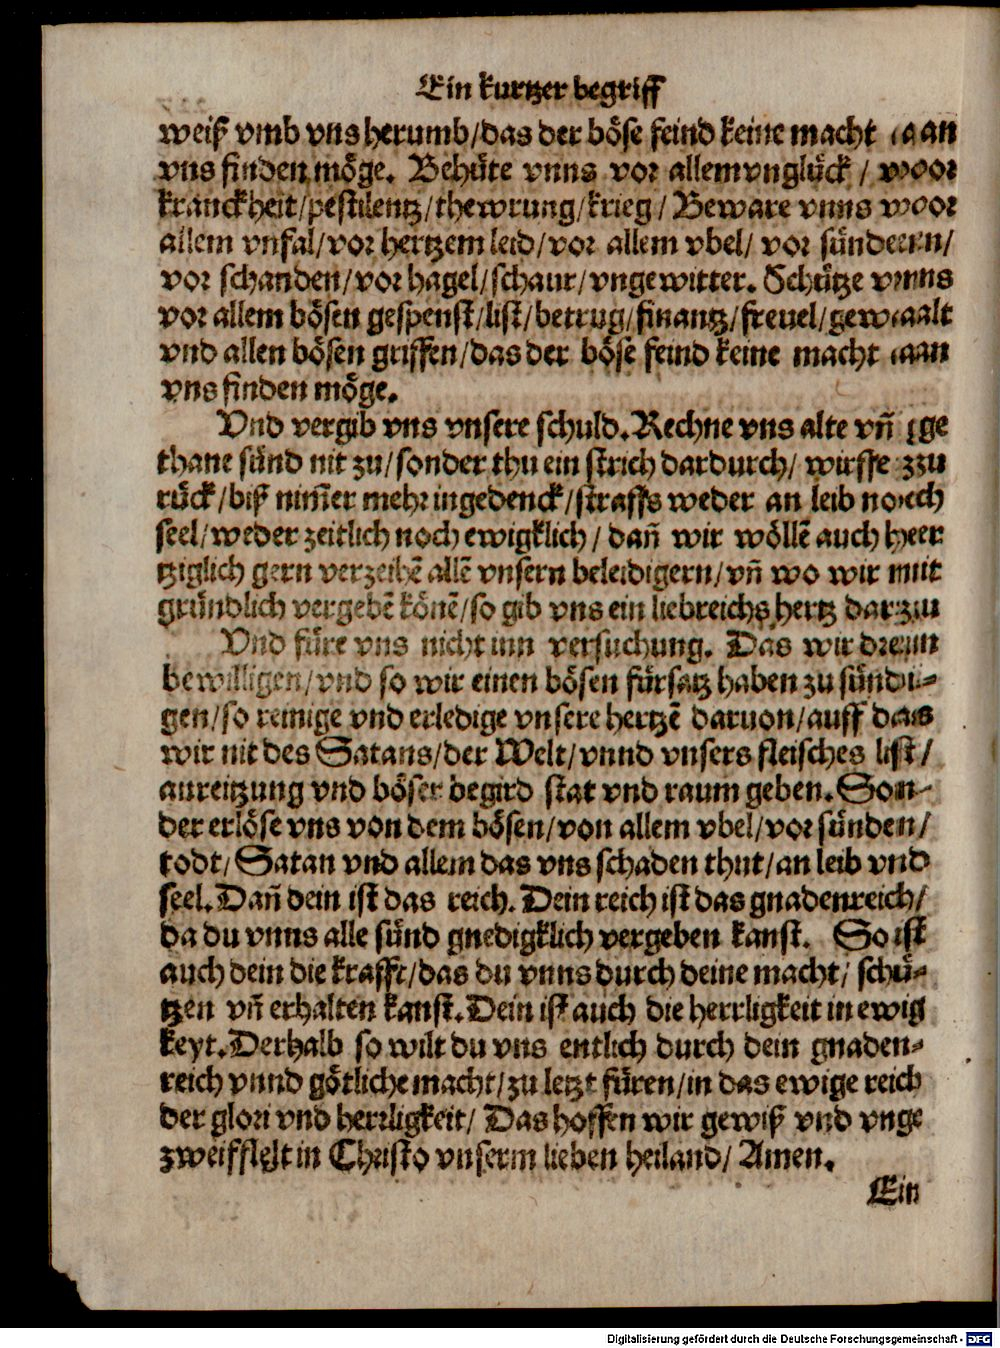 Ein kurtzer begriff
weiß vmb vns herumb/das der böse feind keine macht an
vns finden möge. Behüte vnns vor allem vnglück / vor
kranckheit/pestilentz/thewrung/krieg/ Beware vnns vor
allem vnfal/vor hertzem leid/vor allem vbel/ vor sünden/
vor schanden/vor hagel/schaur/vngewitter. Schütze vnns
vor allem bösen gespenst/list/betrug/finantz/freuel/gewalt
vnd allen bösen griffen/das der böse feind keine macht an
vns finden möge.
Vnd vergib vns vnsere schuld. Rechne vns alte vñ ge
thane sünd nit zu/sonder thu ein strich dardurch/ wirffe zu
rück/biß nim̄er mehr ingedenck/straffs weder an leib noch
seel/weder zeitlich noch ewigklich/ dañ wir wöllē auch her
tziglich gern verzeihē allē vnsern beleidigern/vñ wo wir nit
gründlich vergebē könē/so gib vns ein liebreichs hertz darzu
Vnd füre vns nicht inn versuchung. Das wir drein
bewilligen/vnd so wir einen bösen fürsatz haben zu sündi-
gen/so reinige vnd erledige vnsere hertzē daruon/auff das
wir nit des Satans/der Welt/vnnd vnsers fleisches list/
anreitzung vnd böser begird stat vnd raum geben. Son-
der erlöse vns von dem bösen/von allem vbel/vor sünden/
todt/Satan vnd allem das vns schaden thut/an leib vnd
seel. Dañ dein ist das reich. Dein reich ist das gnadenreich/
da du vnns alle sünd gnedigklich vergeben kanst. So ist
auch dein die krafft/das du vnns durch deine macht/ schü-
tzen vñ erhalten kanst. Dein ist auch die herrligkeit in ewig
keyt. Derhalb so wilt du vns entlich durch dein gnaden-
reich vnnd götliche macht/zu letzt füren/in das ewige reich
der glori vnd herrligkeit/ Das hoffen wir gewiß vnd vnge
zweifflelt in Christo vnserm lieben heiland/ Amen.
Ein
Digitalisierung gefördert durch die Deutsche Forschungsgemeinschaft - DFG